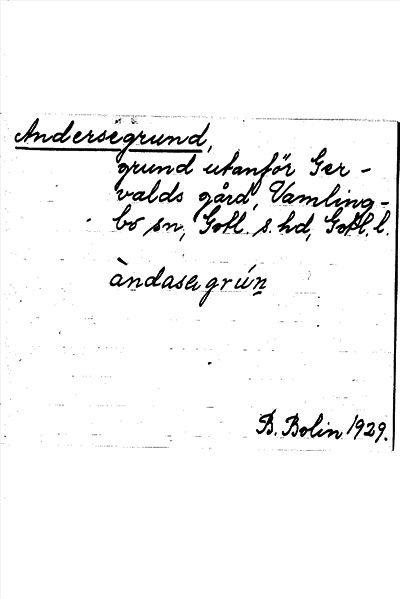 Andersegrund,
grund utanför Ger-
valds gård, Vamling-
bo sn, Gotl. s. hd, Gotl. l.
àndasa grún
B. Bolin 1929.